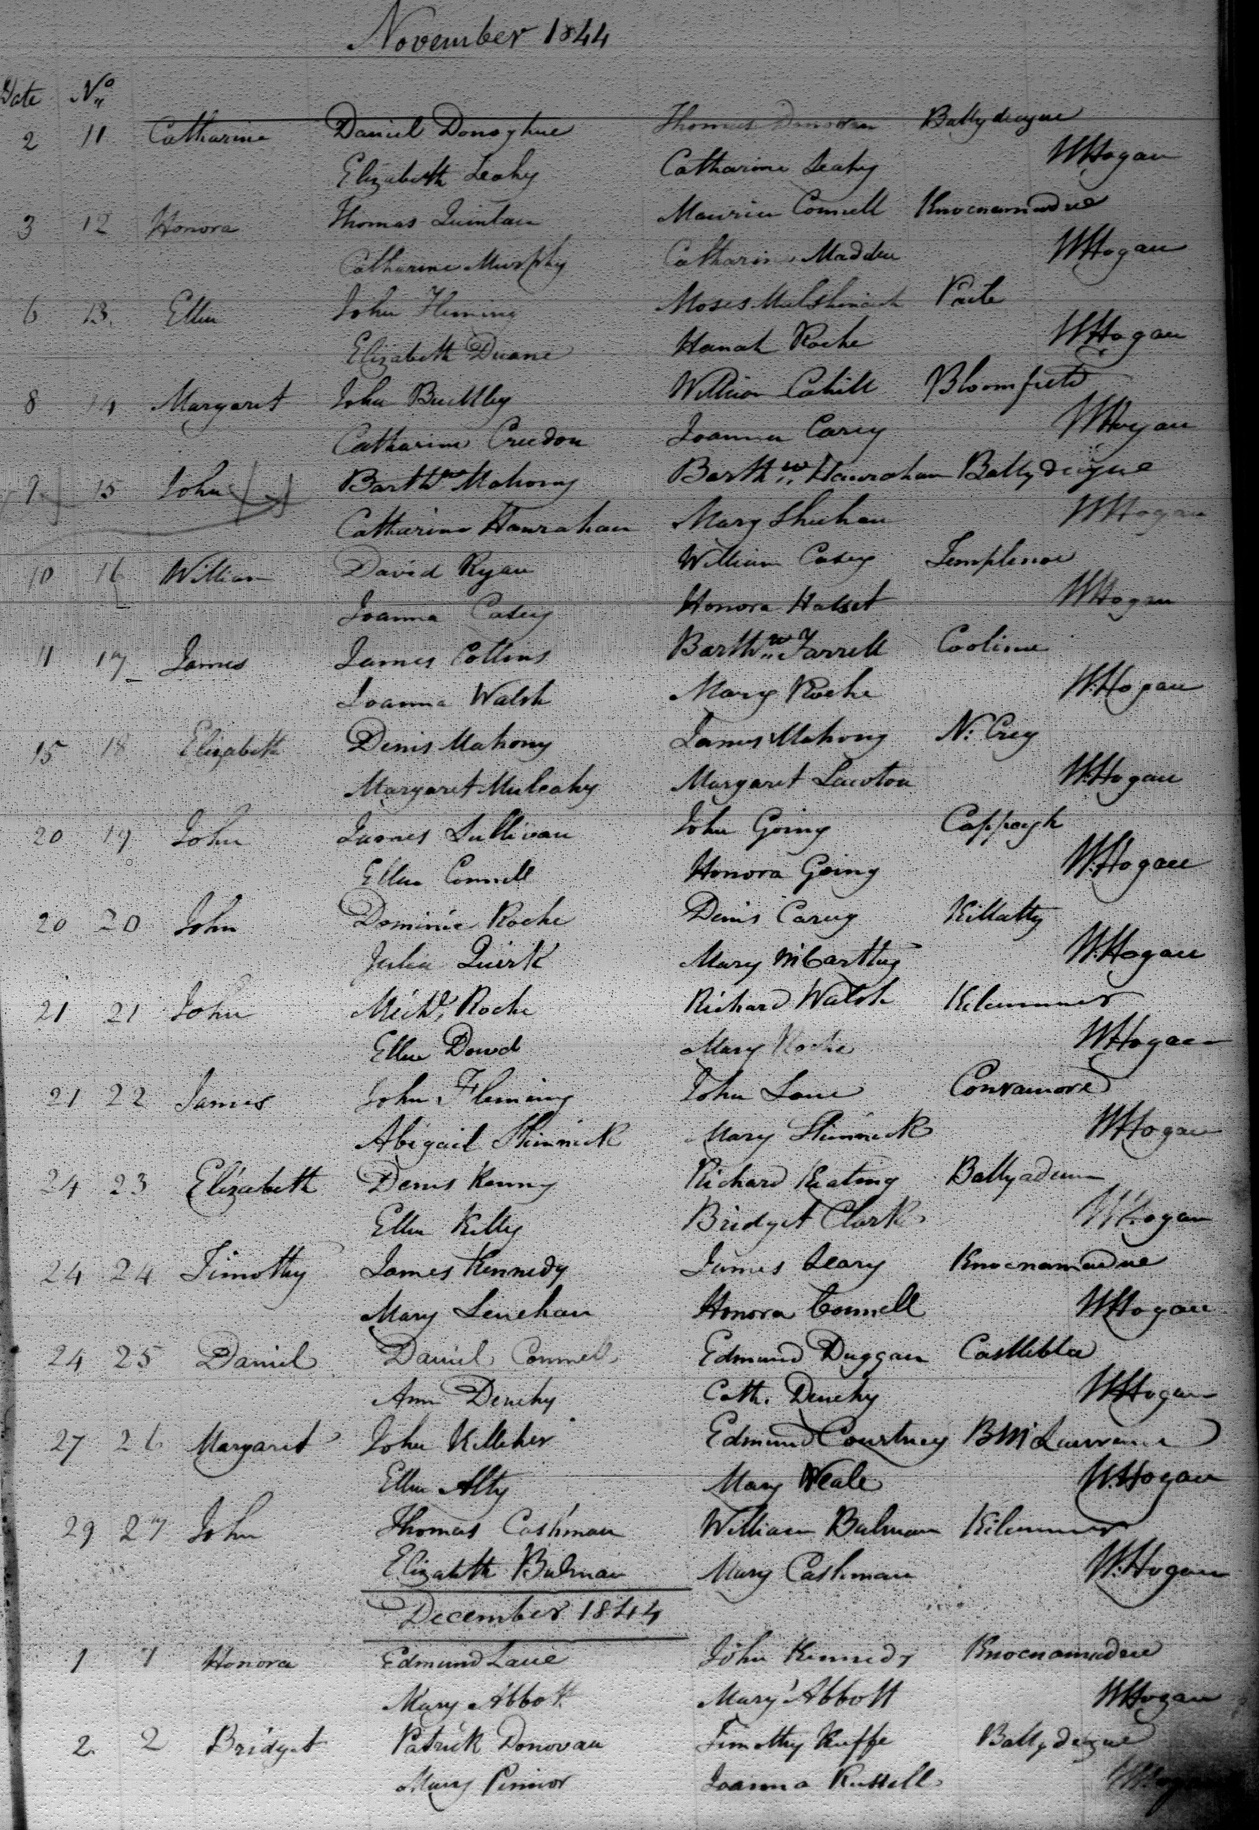 November 1844
Date No
2 11 Catharine Daniel Donoghue Thomas Donovan Ballydeigue
Elizabeth Leahy Catharine Leahy WHogan
3 12 Honora Thomas Quinlan Maurice Connell Knocnamadue
Catharine Murphy Catharine Madden WHogan
6 13 Ellen John Fleming Moses
Elizabeth Duane Hanah Roche WHogan
8 14 Margaret John Buckley William Cahill Bloomfield
Catharine Creedon Joanna Carey WHogan
9 15 John Barthw Mahony Barthw Hanrahan Ballydeigue
Catharine Hanrahan Mary Sheehan WHogan
10 16 William David Ryan William Casey Templenoe
Joanna Casey Honora WHogan
11 17 James James Collins Barthw Farrell Cooline
Joanna Walsh Mary Roche W.Hogan
15 18 Elizabeth Denis Mahony James Mahony N. Creg
Margaret Mulcahy Margaret Lawton W.Hogan
20 19 John James Sullivan John Going Cappagh
Ellen Connell Honora Going W.Hogan
20 20 John Dominic Roche Denis Carey Killatty
Julia Quirk Mary McCarthy W.Hogan
21 21 John Michl. Roche Richard Walsh Kilcummer
Ellen Dowd Mary Roche WHogan
21 22 James John Fleming John Lane Convamore
Abigail Shinnick Mary Shinnick WHogan
24 23 Elizabeth Denis Kenny Richard Keating Ballyadeen
Ellen Kelly Bridget Clark WHogan
24 24 Timothy James Kennedy James Leary Knocnamadue
Mary Lenehan Honora Connell WHogan
24 25 Daniel Daniel Connell Edmund Duggan Castlebla
Ann Denehy Cath. Denehy WHogan
27 26 Margaret John Kelleher Edmund Courtney BMcLawrence
Ellen Alty Mary Weale W.Hogan
29 27 John Thomas Cashman William Bulman Kilcummer
Elizabeth Bulman Mary Cashman W.Hogan
December 1844
1 1 Honora Edmund Lane John Kennedy Knocnamadue
Mary Abbott Mary Abbott WHogan
2 2 Bridget Patrick Donovan Timothy Keeffe Ballydeigue
Mary Joanna Russell WHogan